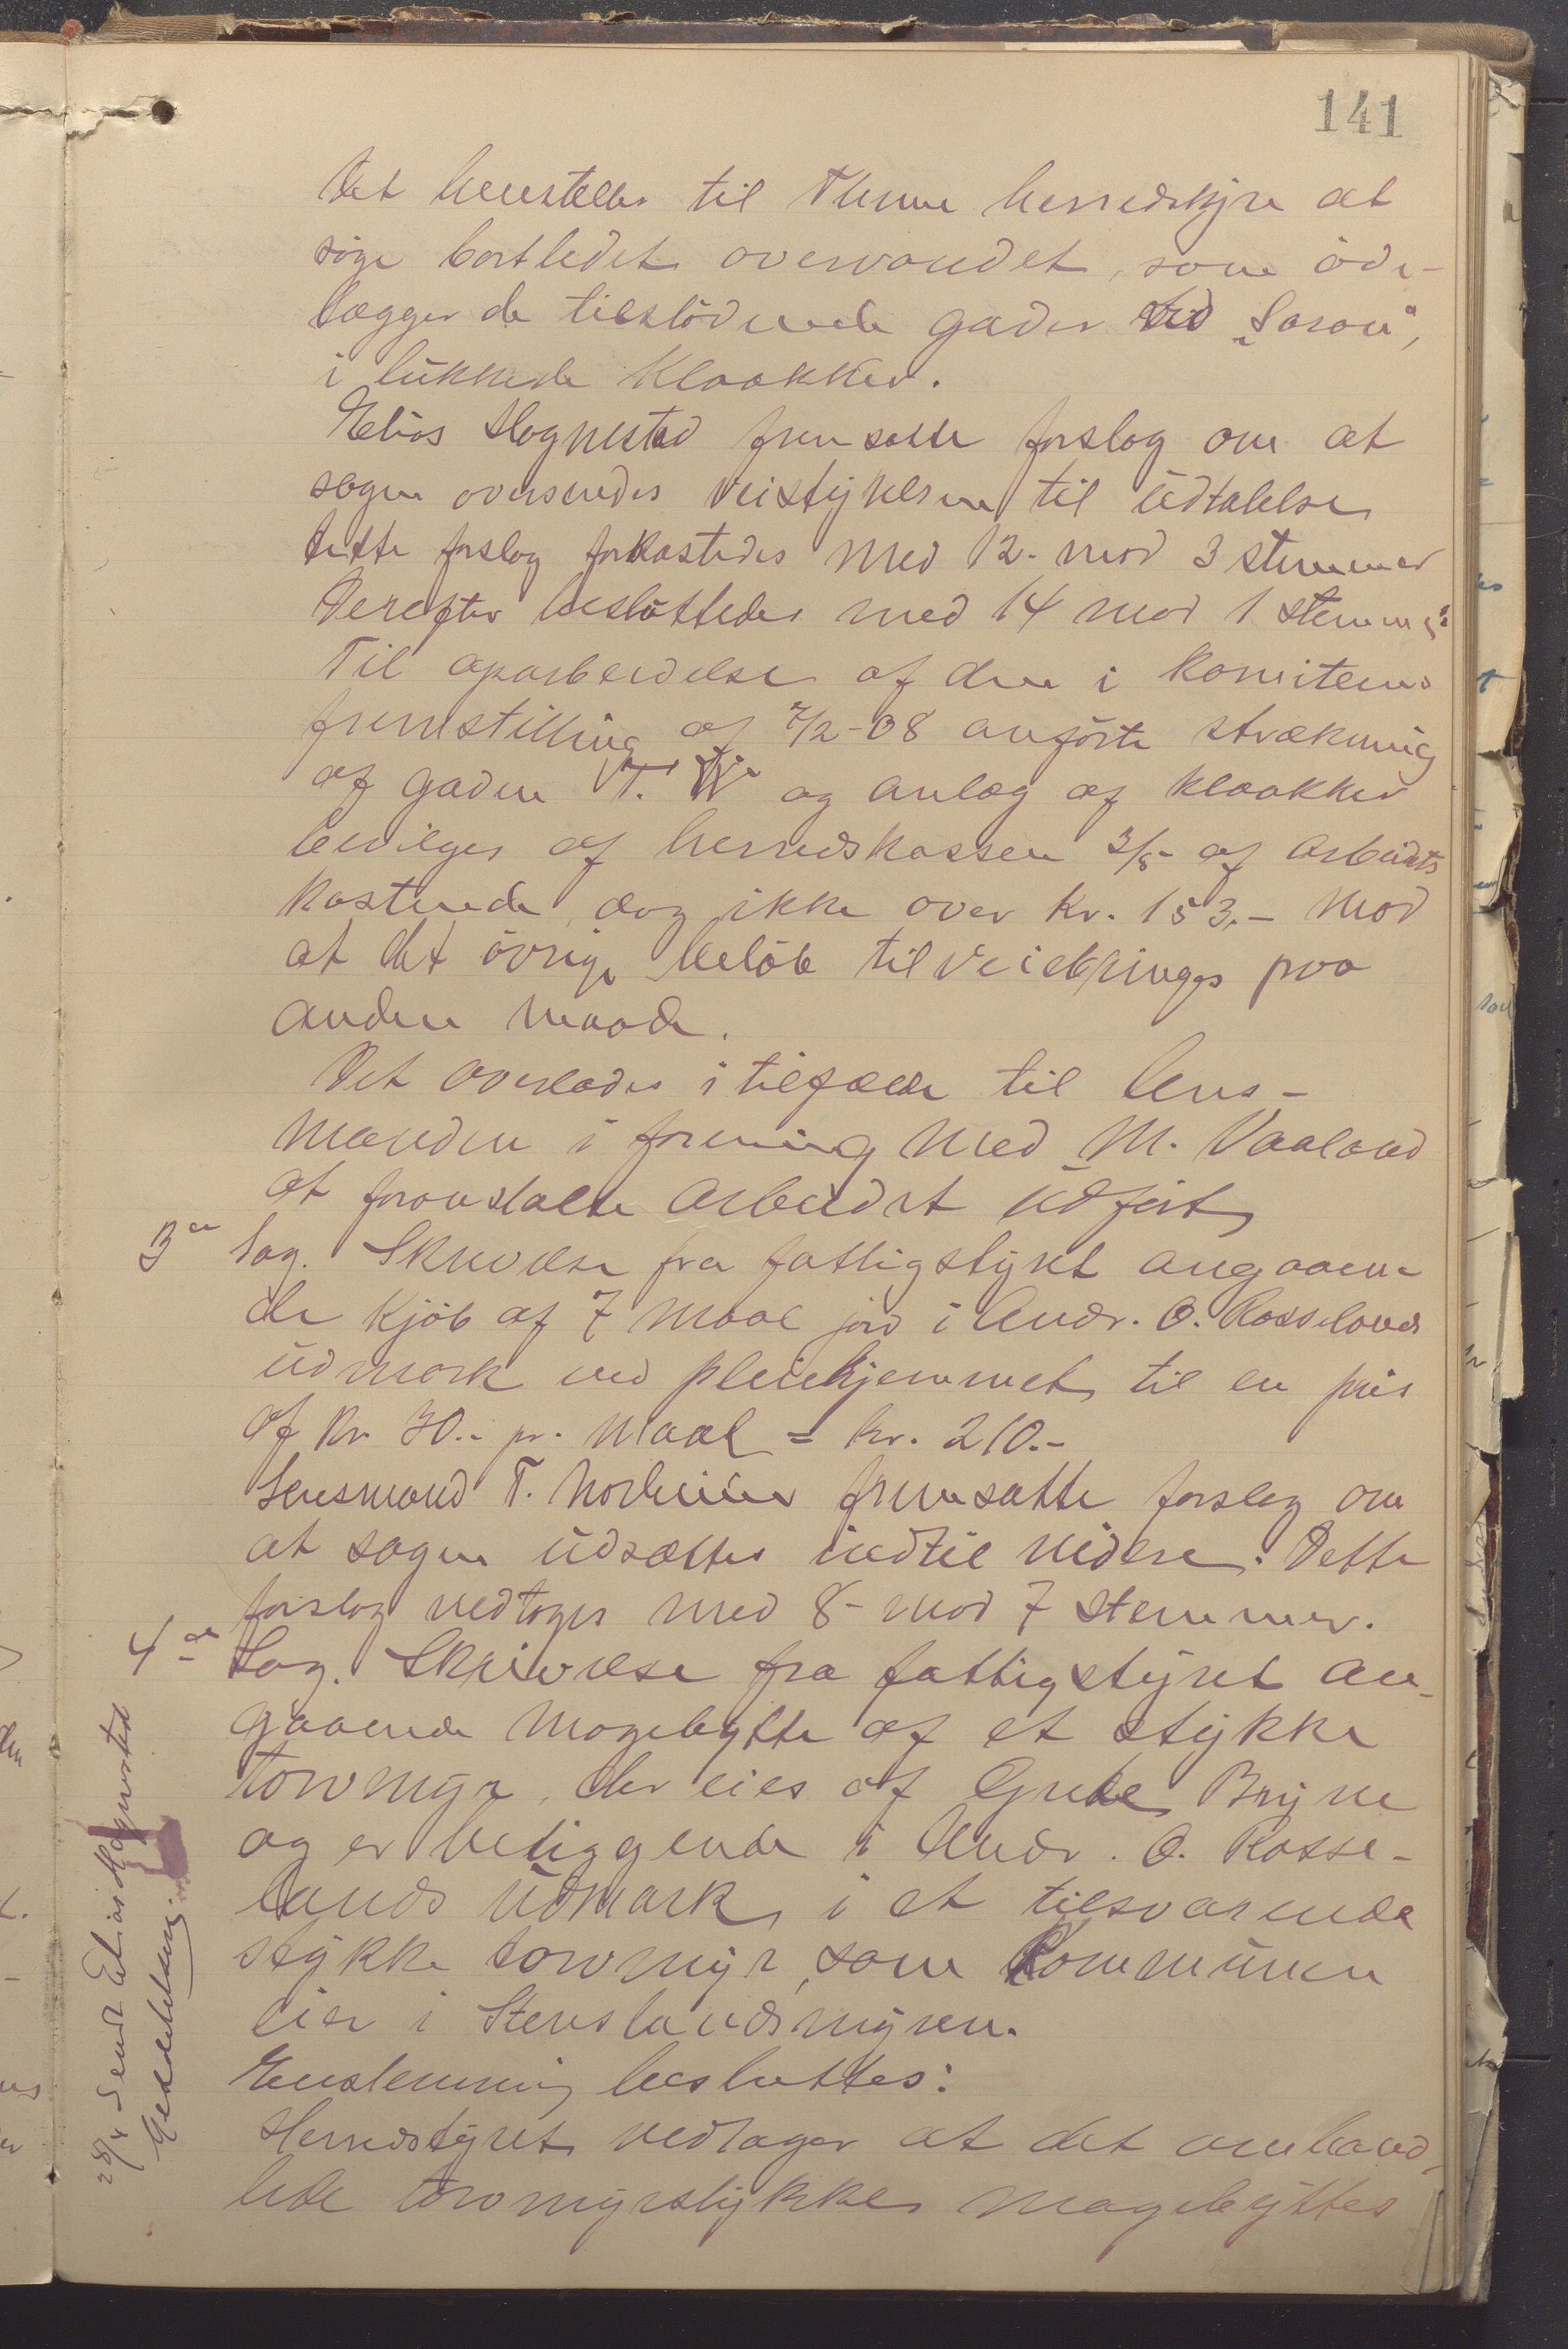 141
Det henstilles til Thime herredstyre at
søge bortledet overvandet, som øde-
lægger de tilstødende gader ved "Saron",
i lukkede kloakker.
Elias Hognestad fremsatte forslag om at
sagen oversendes veistyrelsen til udtalelse
dette forslag forkastedes med 12- mod 3 stemmer
Derefter besluttedes med 14 mod 1 stemme:
Til oparbeidelse af den i komiteens
fremstilling af 7/2-08 anførte strækning
af gaden "T. W" og anlæg af kloakker
bevilges af herredskassen 3/5- af arbeidets
kostende, dog ikke over kr. 153.- mod
at det øvrige beløb tilveiebringes paa
anden maade.
Det overlades i tilfælde til lens-
manden i forening med M. Vaaland
at foranstalte arbeidet udført
3de Sag. Skrivelse fra fattigstyret angaaen-
de kjøb af 7 maal jord i Andr. O. Rosselands
udmark ved pleiehjemmet til en pris
af kr 30.- pr. maal = kr. 210.-
Lensmand T. Norheim fremsatte forslag om
at sagen udsættes indtil videre. Dette
forslag vedtoges med 8- mod 7 stemmer.
4de Sag. Skrivelse fra fattigstyret an-
gaaende magebytte af et stykke
torvmyr, der eies af Grete Bryne
og er beliggende i Andr. O. Rosse-
lands udmark, i et tilsvarende
stykke torvmyr, som kommunen
eier i Stenslandsmyren.
Enstemmig besluttes:
Herredstyret vedtager at det omhand-
lede torvmyrstykke magebyttes
28/4 sendt Elias Hognestad
Meddelelse.